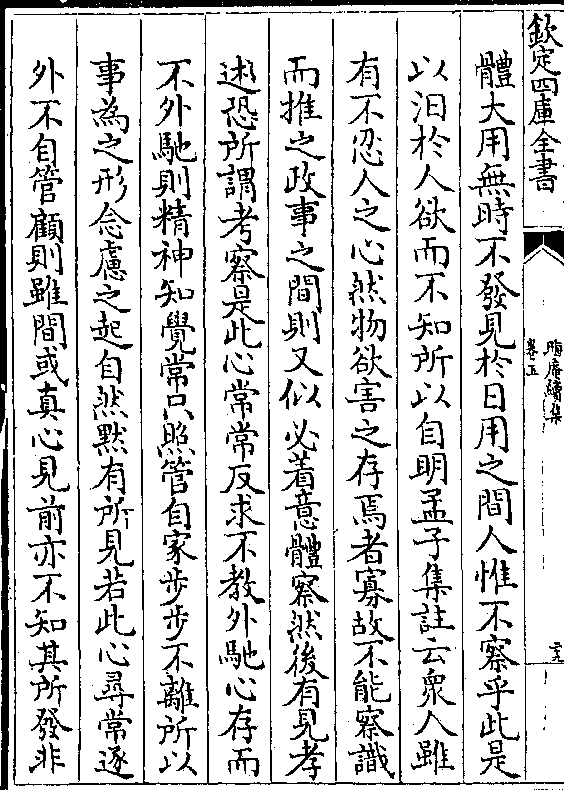 欽定四庫全書
晦庵續集
卷五
二十九
體大用無時不發見於日用之間人惟不察乎此是
以汩於人欲而不知所以自明孟子集註云衆人雖
有不忍人之心然物欲害之存焉者寡故不能察識
而推之政事之間則又似必着意體察然後有見孝
述恐所謂考察是此心常常反求不教外馳心存而
不外馳則精神知覺常只照管自家步步不離所以
事為之形念慮之起自然黙有所見若此心尋常逐
外不自管顧則雖間或真心見前亦不知其所發非